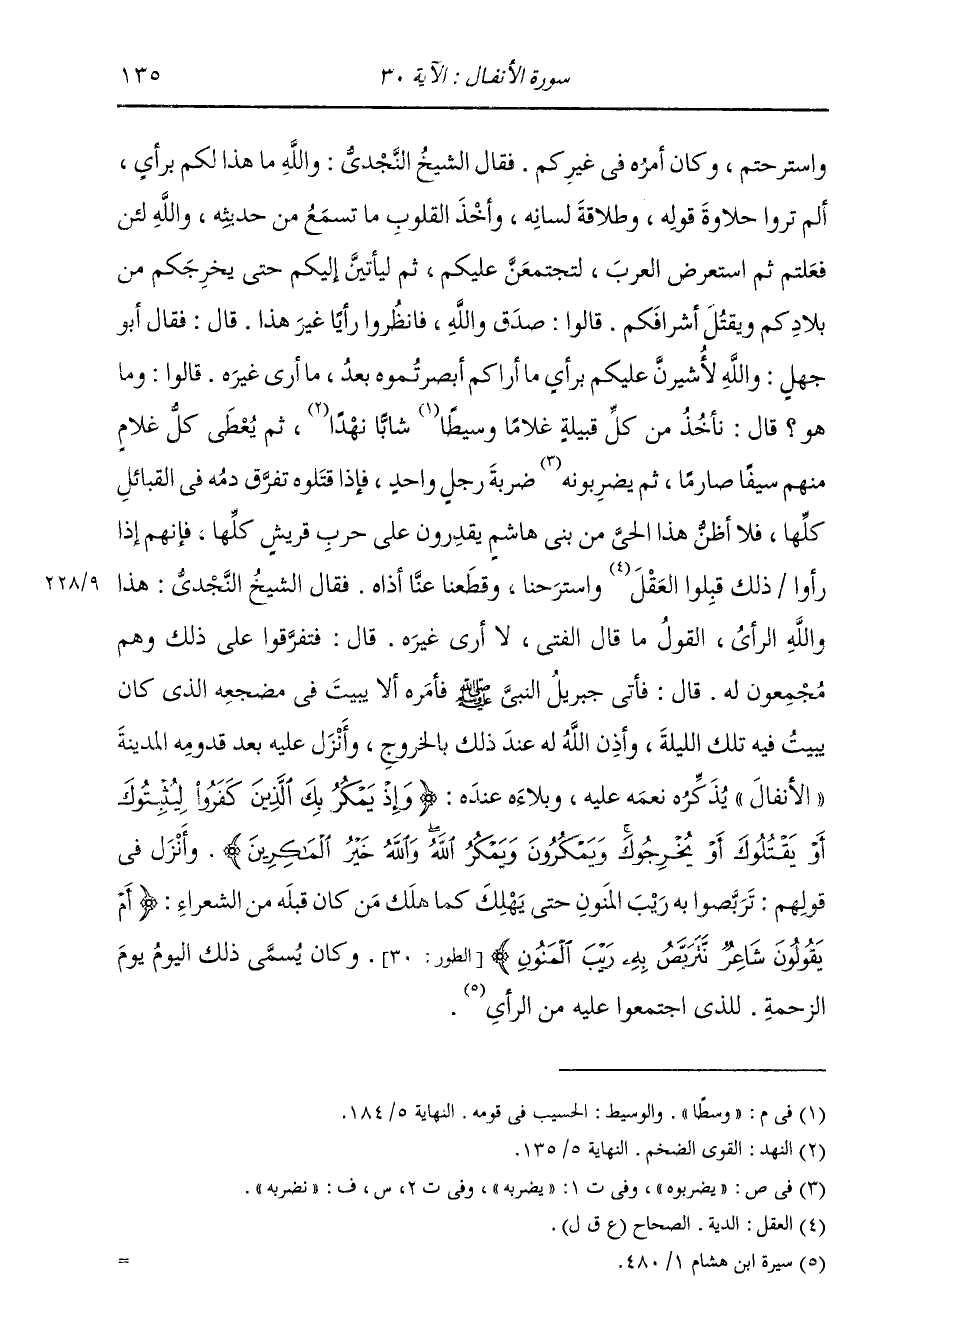 سورة الأنفال : الآية ٣٠ ١٣٥
واسترحتم ، وكان أمرُه فى غيرِكم . فقال الشيخُ النَّجْدىُّ : واللَّهِ ما هذا لكم برأي ،
ألم تروا حلاوةَ قولِه ، وطلاقةَ لسانِه ، وأخْذَ القلوبِ ما تسمَعُ من حديثِه ، واللَّهِ لئن
فعَلتم ثم استعرض العربَ ، لتجتمعَنَّ عليكم ، ثم ليأتينَّ إليكم حتى يخرِجَكم من
بلادِكم ويقتُلَ أشرافَكم . قالوا : صدَق واللَّهِ ، فانظُروا رأيًا غيرَ هذا . قال : فقال أبو
جهلٍ : واللَّهِ لأُشيرنَّ عليكم برأي ما أراكم أبصرتُموه بعدُ ، ما أرى غيرَه . قالوا : وما
هو ؟ قال : نأخُذُ من كلِّ قبيلةٍ غلامًا وسيطًا(١) شابًّا نهْدًا(٢) ، ثم يُعْطَى كلُّ غلامٍ
منهم سيفًا صارمًا ، ثم يضرِبونه(٣) ضربةَ رجلٍ واحدٍ ، فإذا قتَلوه تفرَّق دمُه فى القبائلِ
كلِّها ، فلا أظنُّ هذا الحىَّ من بنى هاشمٍ يقدِرون على حربِ قريشٍ كلِّها ، فإنهم إذا
رأوا / ذلك قبِلوا العَقْلَ(٤) واسترَحنا ، وقطَعنا عنَّا أذاه . فقال الشيخُ النَّجْدىُّ : هذا ٢٢٨/٩
واللَّهِ الرأىُ ، القولُ ما قال الفتى ، لا أرى غيرَه . قال : فتفرَّقوا على ذلك وهم
مُجْمِعون له . قال : فأتى جبريلُ النبىَّ ﷺ فأمَره ألا يبيتَ فى مضجعِه الذى كان
يبيتُ فيه تلك الليلةَ ، وأذِن اللَّهُ له عندَ ذلك بالخروجِ ، وأَنْزَل عليه بعد قدومِه المدينةَ
« الأنفالَ » يُذَكِّرُه نعمَه عليه ، وبلاءَه عندَه : ﴿ وَإِذْ يَمْكُرُ بِكَ ٱلَّذِينَ كَفَرُوا۟ لِيُثْبِتُوكَ
أَوْ يَقْتُلُوكَ أَوْ يُخْرِجُوكَ ۚ وَيَمْكُرُونَ وَيَمْكُرُ ٱللَّهُ ۖ وَٱللَّهُ خَيْرُ ٱلْمَـٰكِرِينَ ﴾ . وأَنْزَل فى
قولِهم : تَرَبَّصوا به رَيْبَ المَنونِ حتى يَهْلِكَ كما هلَك مَن كان قبلَه من الشعراءِ : ﴿ أَمْ
يَقُولُونَ شَاعِرٌ نَّتَرَبَّصُ بِهِۦ رَيْبَ ٱلْمَنُونِ ﴾ [ الطور : ٣٠] . وكان يُسمَّى ذلك اليومُ يومَ
الزحمةِ . للذى اجتمعوا عليه من الرأىِ(٥) .
(١) فى م : « وسطًا » . والوسيط : الحسيب فى قومه . النهاية ٥/ ١٨٤.
(٢) النهد : القوى الضخم . النهاية ٥/ ١٣٥.
(٣) فى ص : « يضربوه » ، وفى ت ١: « يضربه » ، وفى ت ٢، س ، ف : « نضربه » .
(٤) العقل : الدية . الصحاح (ع ق ل) .
(٥) سيرة ابن هشام ١/ ٤٨٠. =